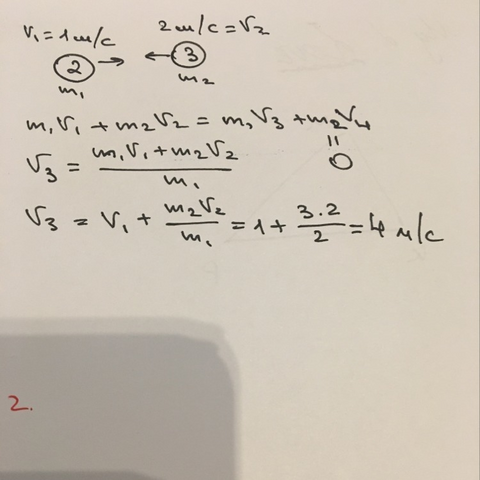 V₁ = 1 м/с 2 м/с = V₂
2 3
m₁ m₂
m₁V₁ + m₂V₂ = m₁V₃ + m₂V₄
V₃ = (m₁V₁ + m₂V₂)/m₁ = 0
V₃ = V₁ + m₂V₂/m₁ = 1 + 3·2/2 = 4 м/с
2.